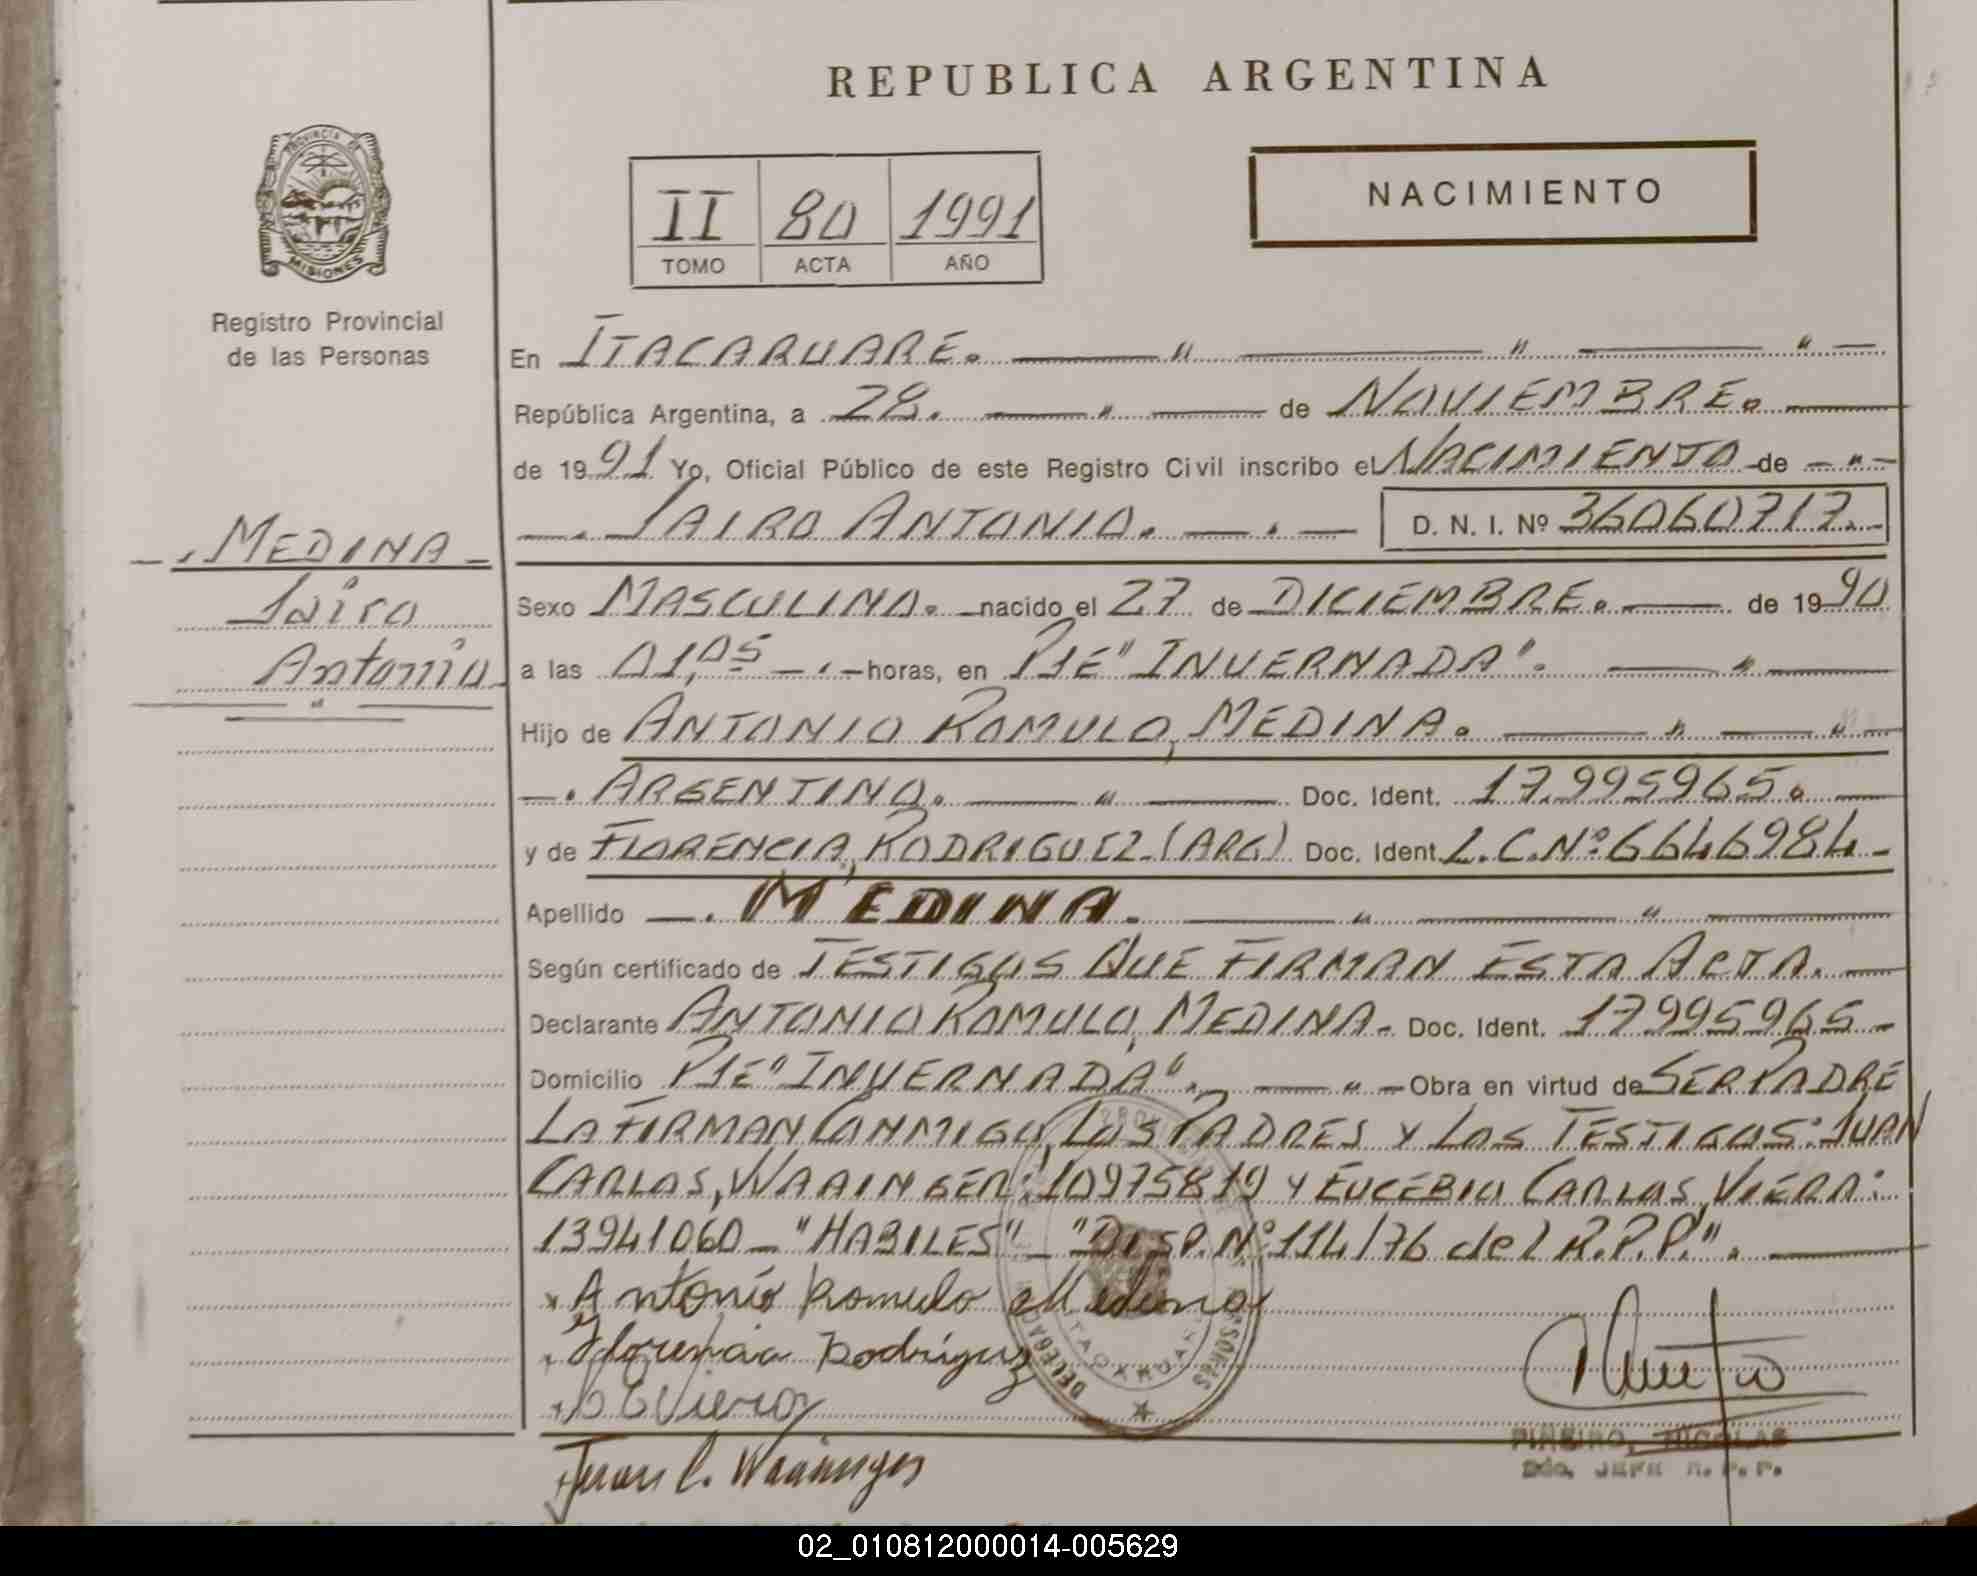 REPUBLICA ARGENTINA
PROVINCIA DE
MISIONES
Registro Provincial
de las Personas
II 80 1991
TOMO ACTA AÑO
NACIMIENTO
En ITACARUARE. — " — " — " —
República Argentina, a 28. — " — de NOVIEMBRE. —
de 1991 Yo, Oficial Público de este Registro Civil inscribo el NACIMIENTO de — " —
—. JAIRO ANTONIO. — . — D. N. I. Nº 36060717.-
—. MEDINA —
Jairo
Antonio
— " —
Sexo MASCULINO. — nacido el 27 de DICIEMBRE. — de 1990
a las 01,05 — . — horas, en PJE "INVERNADA". — " —
Hijo de ANTONIO ROMULO, MEDINA. — " — " —
—. ARGENTINO. — " — Doc. Ident. 17.995965. —
y de FLORENCIA, RODRIGUEZ.(ARG) Doc. Ident. L.C.Nº 6646984 -
Apellido —. MEDINA. — " — " —
Según certificado de TESTIGOS QUE FIRMAN ESTA ACTA. —
Declarante ANTONIO ROMULO, MEDINA.- Doc. Ident. 17995965 -
Domicilio PJE "INVERNADA". — " — Obra en virtud de SER PADRE
LA FIRMAN CONMIGO, LOS PADRES Y LOS TESTIGOS: JUAN
CARLOS, WAAINGER: 10975819 Y EUCEBIO CARLOS, VIERA:
13941060 - "HABILES" - "DISP. Nº 114/76 del R.P.P.". —
x Antonio Romulo Medina
x Florencia Rodriguez
Viera
Juan C. Waainger
DELEGAC
ITACARUARE
PERSONAS
PIÑEIRO, NICOLAS
2do. JEFE R.P.P.
02_010812000014-005629